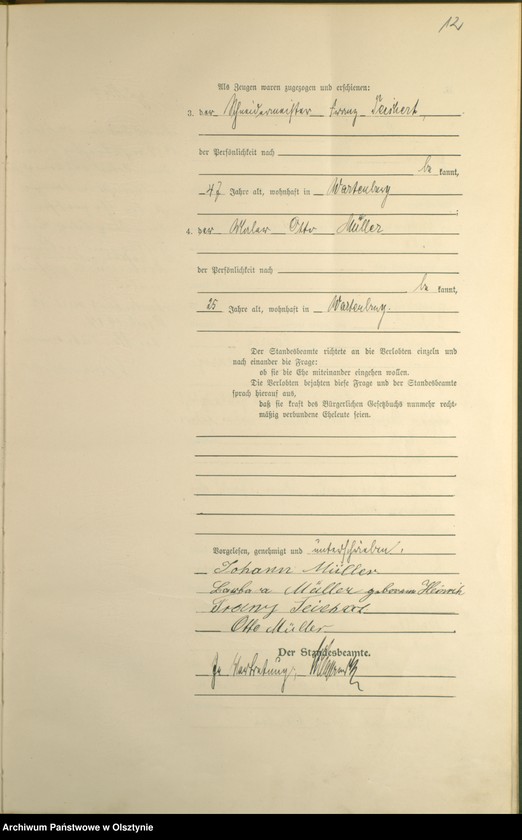 12
Als Zeugen waren zugezogen und erschienen:
3. der Schneidermeister Franz Teichert,
der Persönlichkeit nach
be kannt,
47 Jahre alt, wohnhaft in Wartenburg
4. der Maler Otto Müller
der Persönlichkeit nach
be kannt,
25 Jahre alt, wohnhaft in Wartenburg.
Der Standesbeamte richtete an die Verlobten einzeln und
nach einander die Frage:
ob sie die Ehe miteinander eingehen wollen.
Die Verlobten bejahten diese Frage und der Standesbeamte
sprach hierauf aus,
daß sie kraft des Bürgerlichen Gesetzbuchs nunmehr recht-
mäßig verbundene Eheleute seien.
Vorgelesen, genehmigt und unterschrieben.
Johann Müller
Barbara Müller geborene
Franz Teichert
Otto Müller
Der Standesbeamte.
In Vertretung,
Archiwum Państwowe w Olsztynie